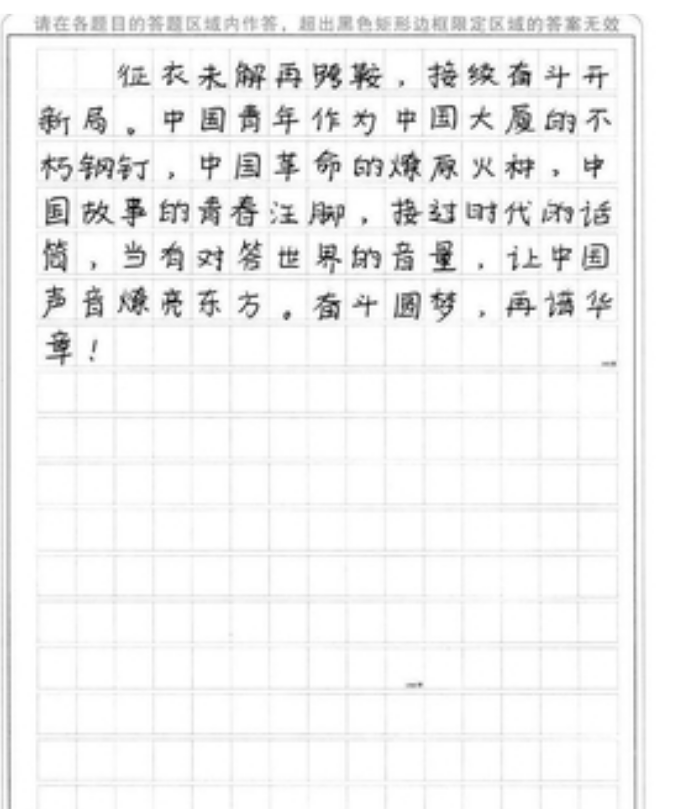 请在各题目的答题区域内作答，超出黑色矩形边框限定区域的答案无效
征衣未解再跨鞍，接续奋斗开
新局。中国青年作为中国大厦的不
朽钢钉，中国革命的燎原火种，中
国故事的青春注脚，接过时代的话
筒，当有对答世界的音量，让中国
声音燎亮东方。奋斗圆梦，再谱华
章！